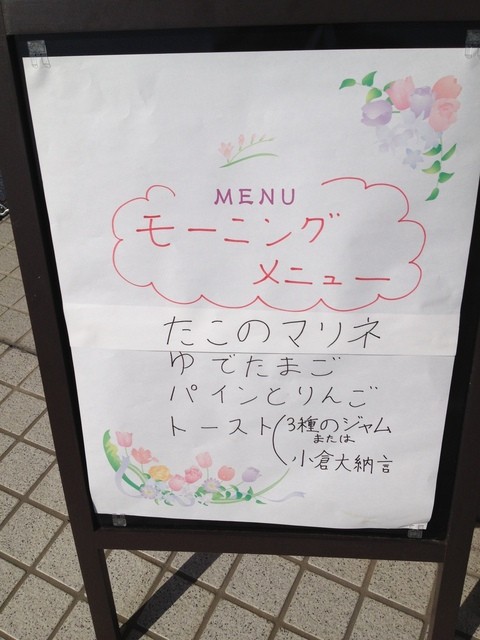 MENU
モーニング
メニュー
たこのマリネ
ゆでたまご
パインとりんご
トースト(3種のジャム
または
小倉大納言